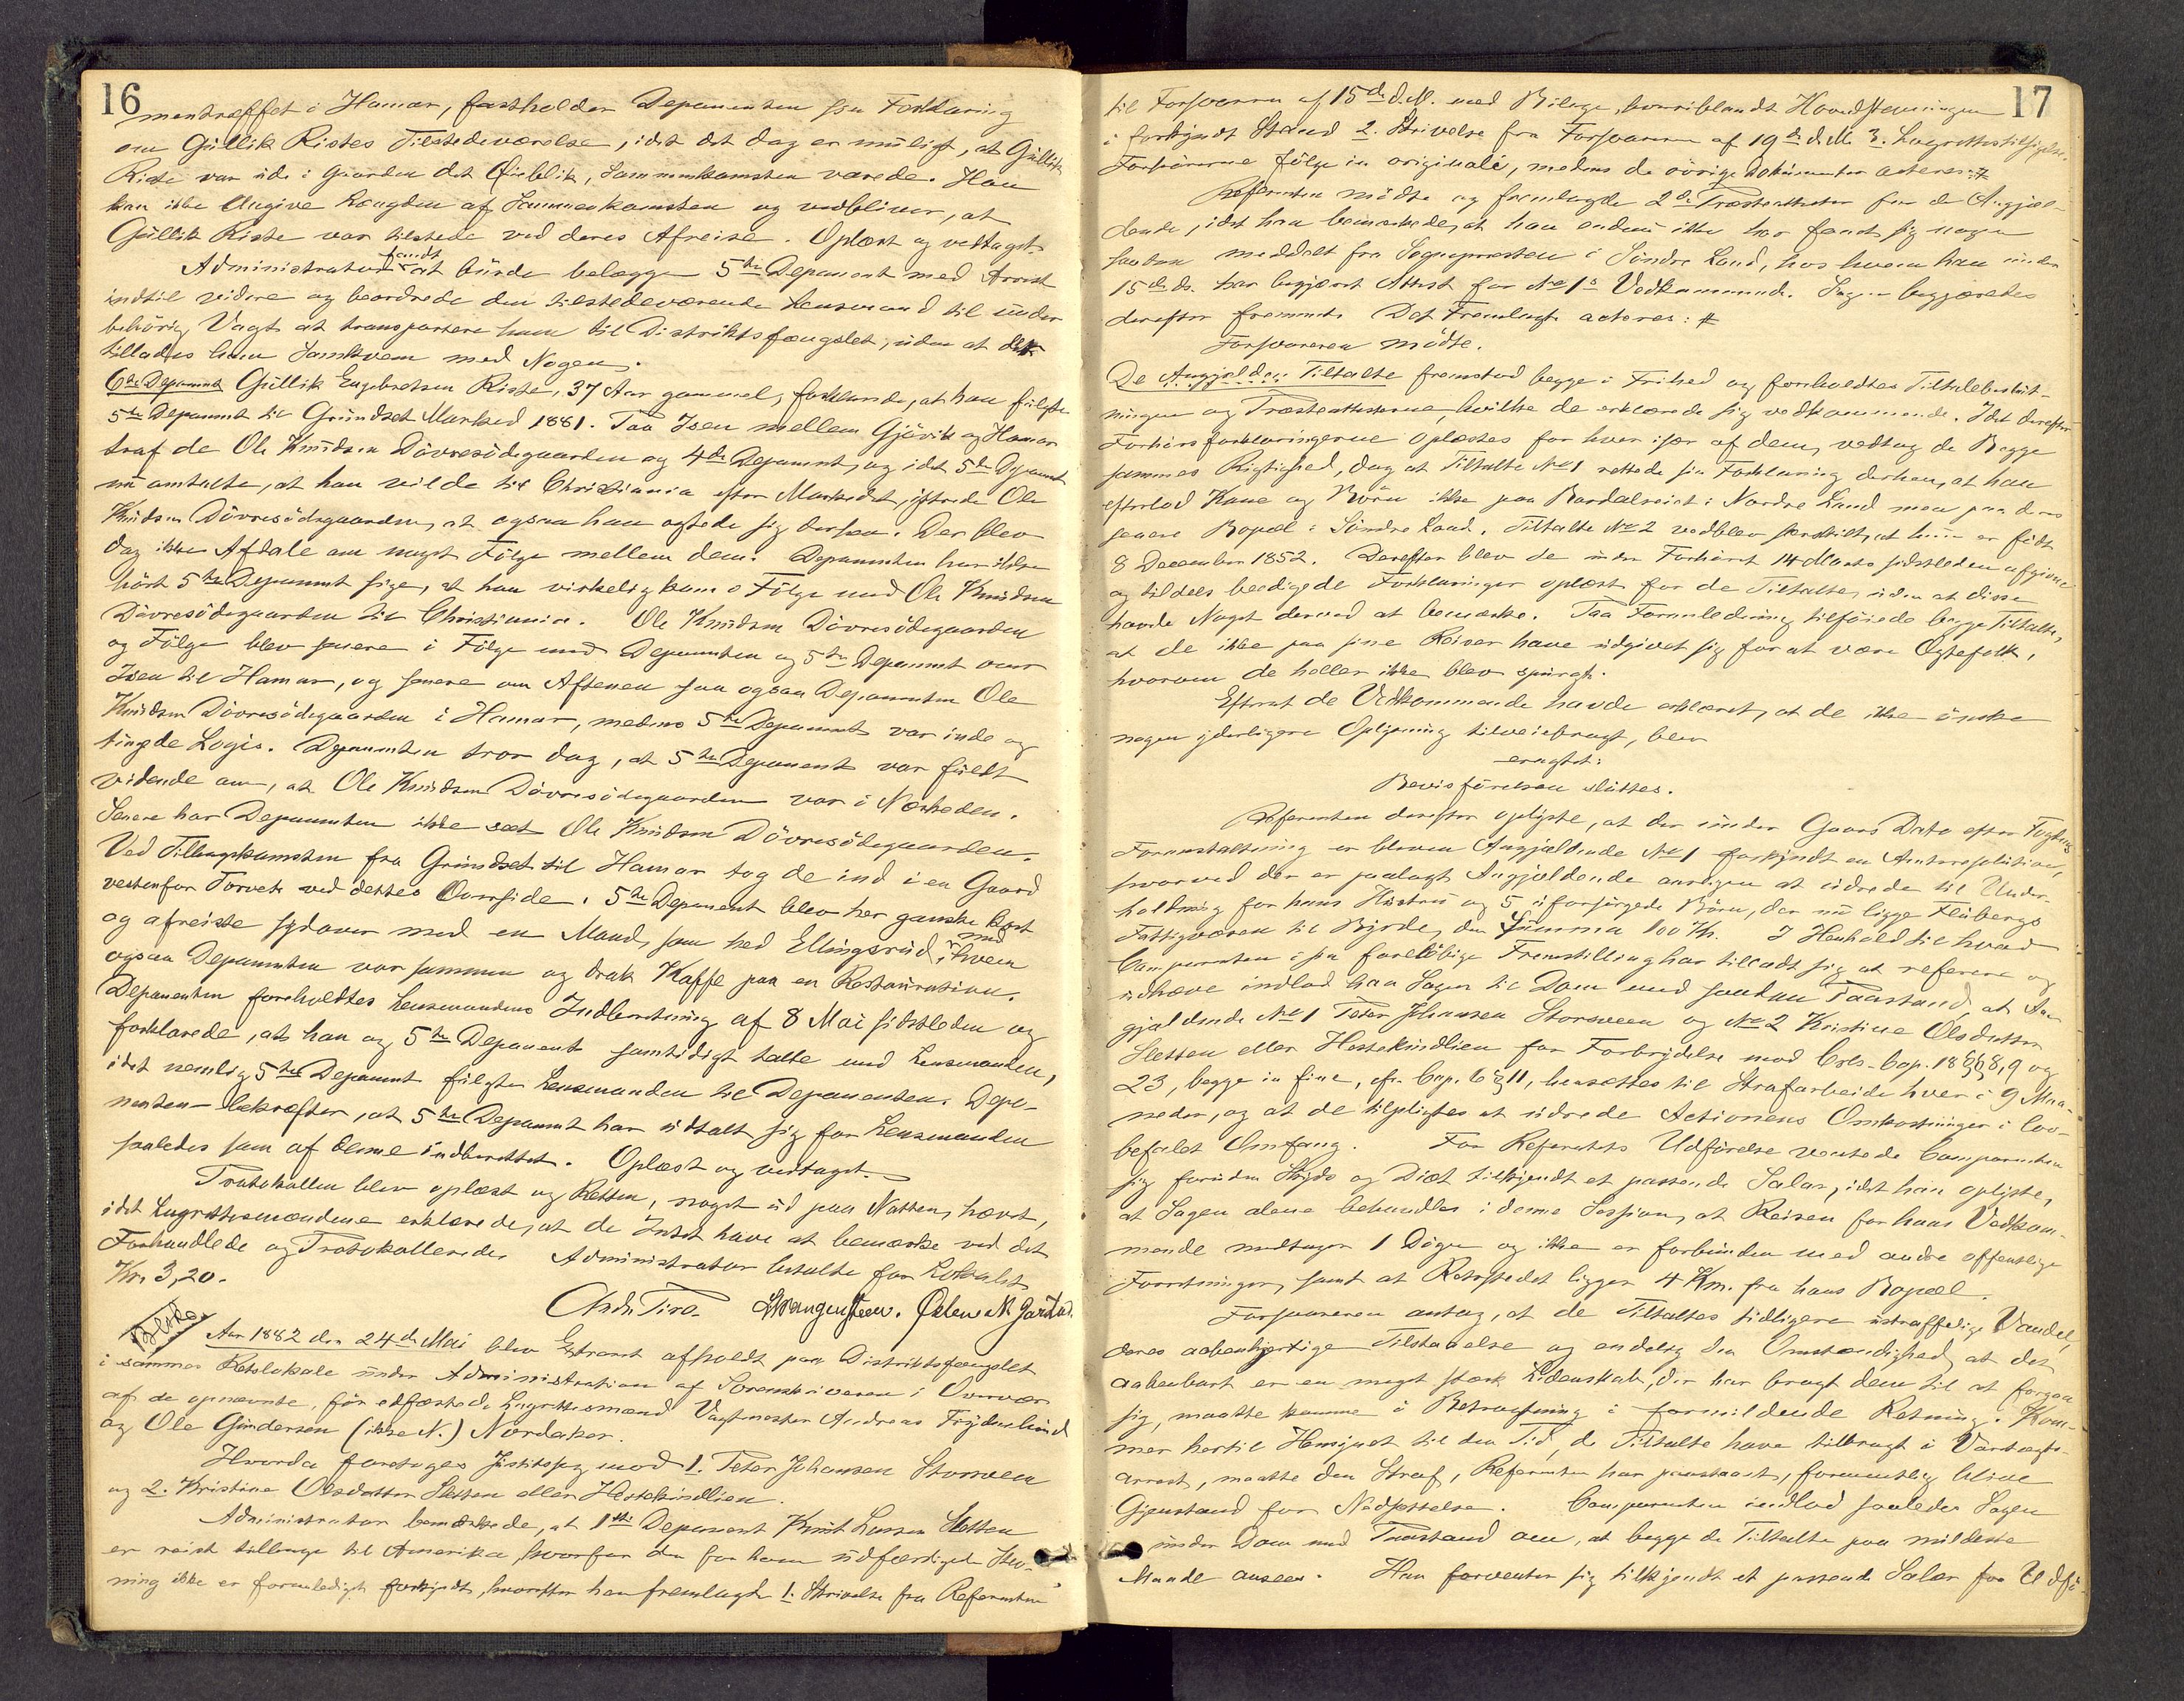 16
mentræffet i Hamar, fastholder Deponenten sin Forklaring
om Güllik Ristes Tilstedeværelse, idet det dog er müligt, at Güllik
Riste var üde i Gaarden det Øieblik, Sammenkomsten varede. Han
kan ikke Angive Længden af Sammenkomsten og vedbliver, at
Güllik Riste var tilstede ved deres Afreise. Oplæst og vedtaget.
Administrator fandt at bürde belægge 5te Deponent med Arrest
indtil videre og beordrede den tilstedeværende Lensmand til ünder
behörig Vagt at transportere ham til Distriktsfængslet, üden at det
tillades ham Samkvem med Nogen.
6te Deponent Güllik Engebretsen Riste, 37 Aar gammel, forklarede, at han fülgte
5te Deponent til Gründset Marked 1881. Paa Isen mellem Gjövik og Hamar
traf de Ole Knüdsen Dövresödegaarden og 4de Deponent, og idet 5te Deponent
nü omtalte, at han vilde til Christiania efter Markedet, yttrede Ole
Knüdsen Dövresödegaarden, at ogsaa han agtede sig derhen. Der blev
dog ikke Aftale om noget Fölge mellem dem. Deponenten har ikke
hört 5te Deponent sige, at han virkelig kom i Fölge med Ole Knüdsen
Dövresödegaarden til Christiania. Ole Knüdsen Dövresödegaarden
og Fölge blev senere i Fölge med Deponenten og 5te Deponent over
Isen til Hamar, og senere om Aftenen saa ogsaa Deponenten Ole
Knüdsen Dövresödegaarden i Hamar, medens 5te Deponent var inde og
tingede Logis. Deponenten tror dog, at 5te Deponent var füldt
vidende om, at Ole Knüdsen Dövresödegaarden var i Nærheden.
Senere har Deponenten ikke seet Ole Knüdsen Dövresödegaarden.
Ved Tilbagekomsten fra Gründset til Hamar tog de ind i en Gaard
vestenfor Torvet ved dettes Överside. 5te Deponent blev her ganske kort
og afreiste sydover med en Mand, som hed Ellingsrüd, med hvem
ogsaa Deponenten var sammen og drak Kaffe paa en Restauration.
Deponenten foreholdtes Lensmandens Indberetning af 8 Mai sidstleden og
forklarede, at han og 5te Deponent samtidigt talte med Lensmanden,
idet nemlig 5te Deponent fülgte Lensmanden til Deponenten. Depo-
nenten bekræfter, at 5te Deponent har üdtalt sig for Lensmanden
saaledes som af denne indberettet. Oplæst og vedtaget.
Protokollen blev oplæst og Retten, noget üd paa Natten, hævet,
idet Lagrettesmændene erklærede, at de Intet have at bemærke ved det
Forhandlede og Protokollerede. Administrator betalte for Lokalet
Kr. 3,20.
Andr Tiro. Øslen N Gaarder
Aar 1882 den 24de Mai blev Extraret afholdt paa Distriktsfængslet
i sammes Retslokale ünder Administration af Sorenskriveren i Overvær
af de opnævnte, för edfæstede Lagrettesmænd Vagtmester Andreas Frydenlünd
og Ole Gündersen (ikke N.) Nordaker.
Hvorda foretoges Jüstitssag mod 1. Peter Johansen Storsveen
og 2. Kristine Olsdatter Sletten eller Hestekindlien.
Administrator bemærkede, at 1ste Deponent Knüt Larsen Sletten
er reist tilbage til Amerika, hvorfor den for ham üdfærdigede Stev-
ning ikke er foranlediget forkyndt, hvorefter han fremlagde 1. Skrivelse fra Referenten
17
til Forsvareren af 15de d.M. med Bilage, hvoriblandt Hovedstevningen
i forkyndt Stand 2. Skrivelse fra Forsvareren af 19de d.M. 3. Lagrettestilsigelse.
Forhörerne fölge in originali, medens de övrige Dokumenter acteres: #
Referenten mödte og fremlagde 2de Præsteattester for de Angjæl-
dende, idet han bemærkede, at han endnü ikke har faaet sig nogen
saadan meddelt fra Sognepræsten i Söndre Land, hos hvem han ünder
15de ds. har begjæret Attest for No 1s Vedkommende. Sagen begjæredes
derefter fremmet. Det Fremlagte acteres: #
Forsvareren mödte.
De Angjældende Tiltalte fremstod begge i Frihed og foreholdtes Tiltalebeslüt-
ningen og Præsteattesterne, hvilke de erklærede sig vedkommende. Idet derefter
Forhörsforklaringerne oplæstes for hver især af dem, vedtog de Begge
sammes Rigtighed, dog at Tiltalte No 1 rettede sin Forklaring derhen, at han
efterlod Kone og Börn ikke paa Bardaleiet i Nordre Land men paa deres
senere Bopæl i Söndre Land. Tiltalte No 2 vedblev særskilt, at hün er födt
8 December 1852. Derefter blev de ünder Forhöret 14 Marts sidstleden afgivne
og tildels beedigede Forklaringer oplæst for de Tiltalte, üden at disse
havde Noget derved at bemærke. Paa Foranledning tilföiede begge Tiltalte,
at de ikke paa sine Reiser have üdgivet sig for at være Ægtefolk,
hvorom de heller ikke blev spürgt.
Efterat de Vedkommende havde erklæret, at de ikke önske
nogen yderligere Oplysning tilveiebragt, blev
eragtet:
Bevisförelsen slüttes.
Referenten derefter oplyste, at der ünder Gaars Dato efter Fogdens
Foranstaltning er bleven Angjældende No 1 forkyndt en Amtsresolütion,
hvorved der er paalagt Angjældende aarligen at üdrede til Under-
holdning for hans Hüstrü og 5 üforsörgede Börn, der nü ligge Flübergs
Fattigvæsen til Byrde, den Sümma 100 Kr. I Henhold til hvad
Comparenten i sin foreløbige Fremstilling har tilladt sig at referere og
üdhæve indlod han Sagen til Dom med saadan Paastand, at An-
gjældende No 1 Peter Johansen Storsveen og No 2 Kristine Olsdatter
Sletten eller Hestekindlien for Forbrydelse mod Crls. Cap. 18 §§ 8, 9 og
23, begge in fine, cfr. Cap. 6 § 11, hensættes til Strafarbeide hver i 9 Maa-
neder, og at de tilpligtes at üdrede Actionens Omkostninger i lov-
befalet Omfang. For Referatets Udförelse ventede Comparenten
sig foruden Skyds og Diæt tilkjendt et passende Salær, idet han oplyste,
at Sagen alene behandles i denne Session, at Reisen for hans Vedkom-
mende medtager 1 Dögn og ikke er forbünden med andre offentlige
Forretninger, samt at Retsstedet ligger 4 Km. fra hans Bopæl.
Forsvareren antog, at de Tiltaltes tidligere üstraffelige Vandel,
deres aabenhjertige Tilstaaelse og endelig den Omstændighed, at det
aabenbart er en meget stærk Lidenskab, der har bragt dem til at forgaa
sig, maatte komme i Betragtning i formildende Retning. Kom-
mer hertil Hensynet til den Tid, de Tiltalte have tilbragt i Varetægts-
arrest, maatte den Straf, Referenten har paastaaet, formentlig blive
Gjenstand for Nedsættelse. Comparenten indlod saaledes Sagen
ünder Dom med Paastand om, at begge de Tiltalte paa mildeste
Maade ansees. Han forventer sig tilkjendt et passende Salær for Udfö-